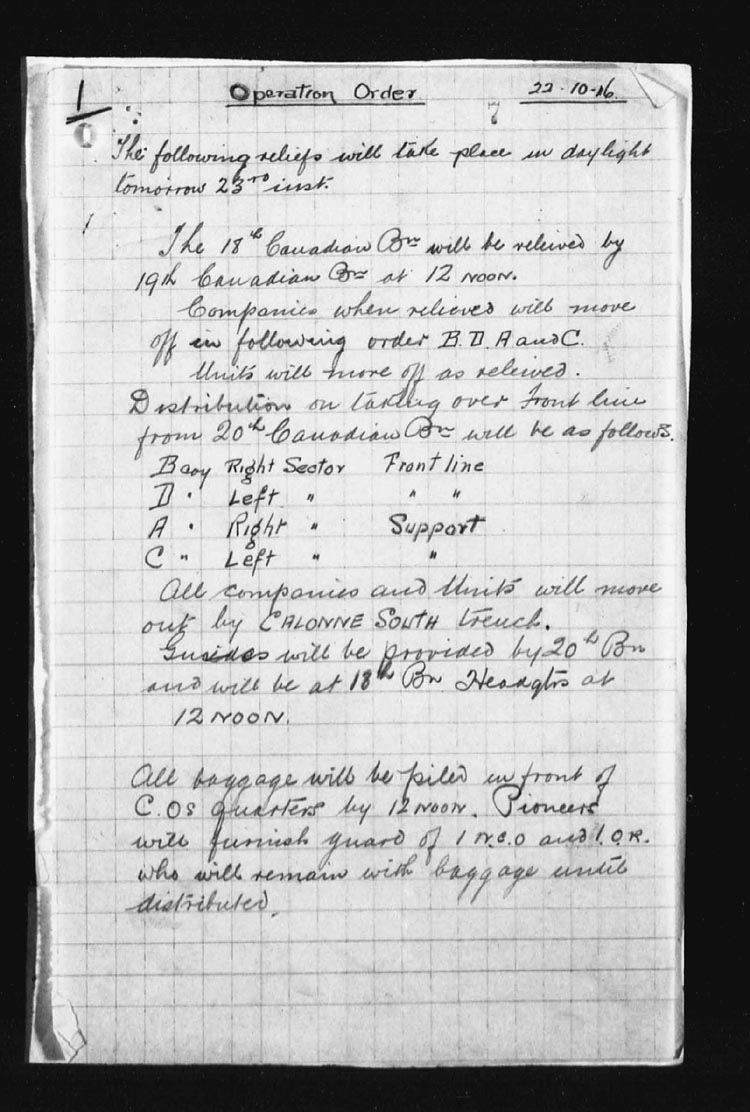 1 Operation Order 22-10-16.
The following reliefs will take place in daylight
tomorrow 23rd inst.
The 18th Canadian Bn will be releived by
19th Canadian Bn at 12 NOON.
Companies when relieved will move
off in following order B. D. A and C.
Units will move off as releived.
Distribution on taking over Front line
from 20th Canadian Bn will be as follows.
B coy Right Sector Front line
D " Left " " "
A " Right " Support
C " Left " "
All companies and Units will move
out by CALONNE SOUTH trench.
Guides will be provided by 20th Bn
and will be at 18th Bn Headqtrs at
12 NOON.
All baggage will be piled in front of
C.Os quarters by 12 NOON. Pioneers
will furnish guard of 1 N.C.O and 1.O.R.
who will remain with baggage until
distributed.